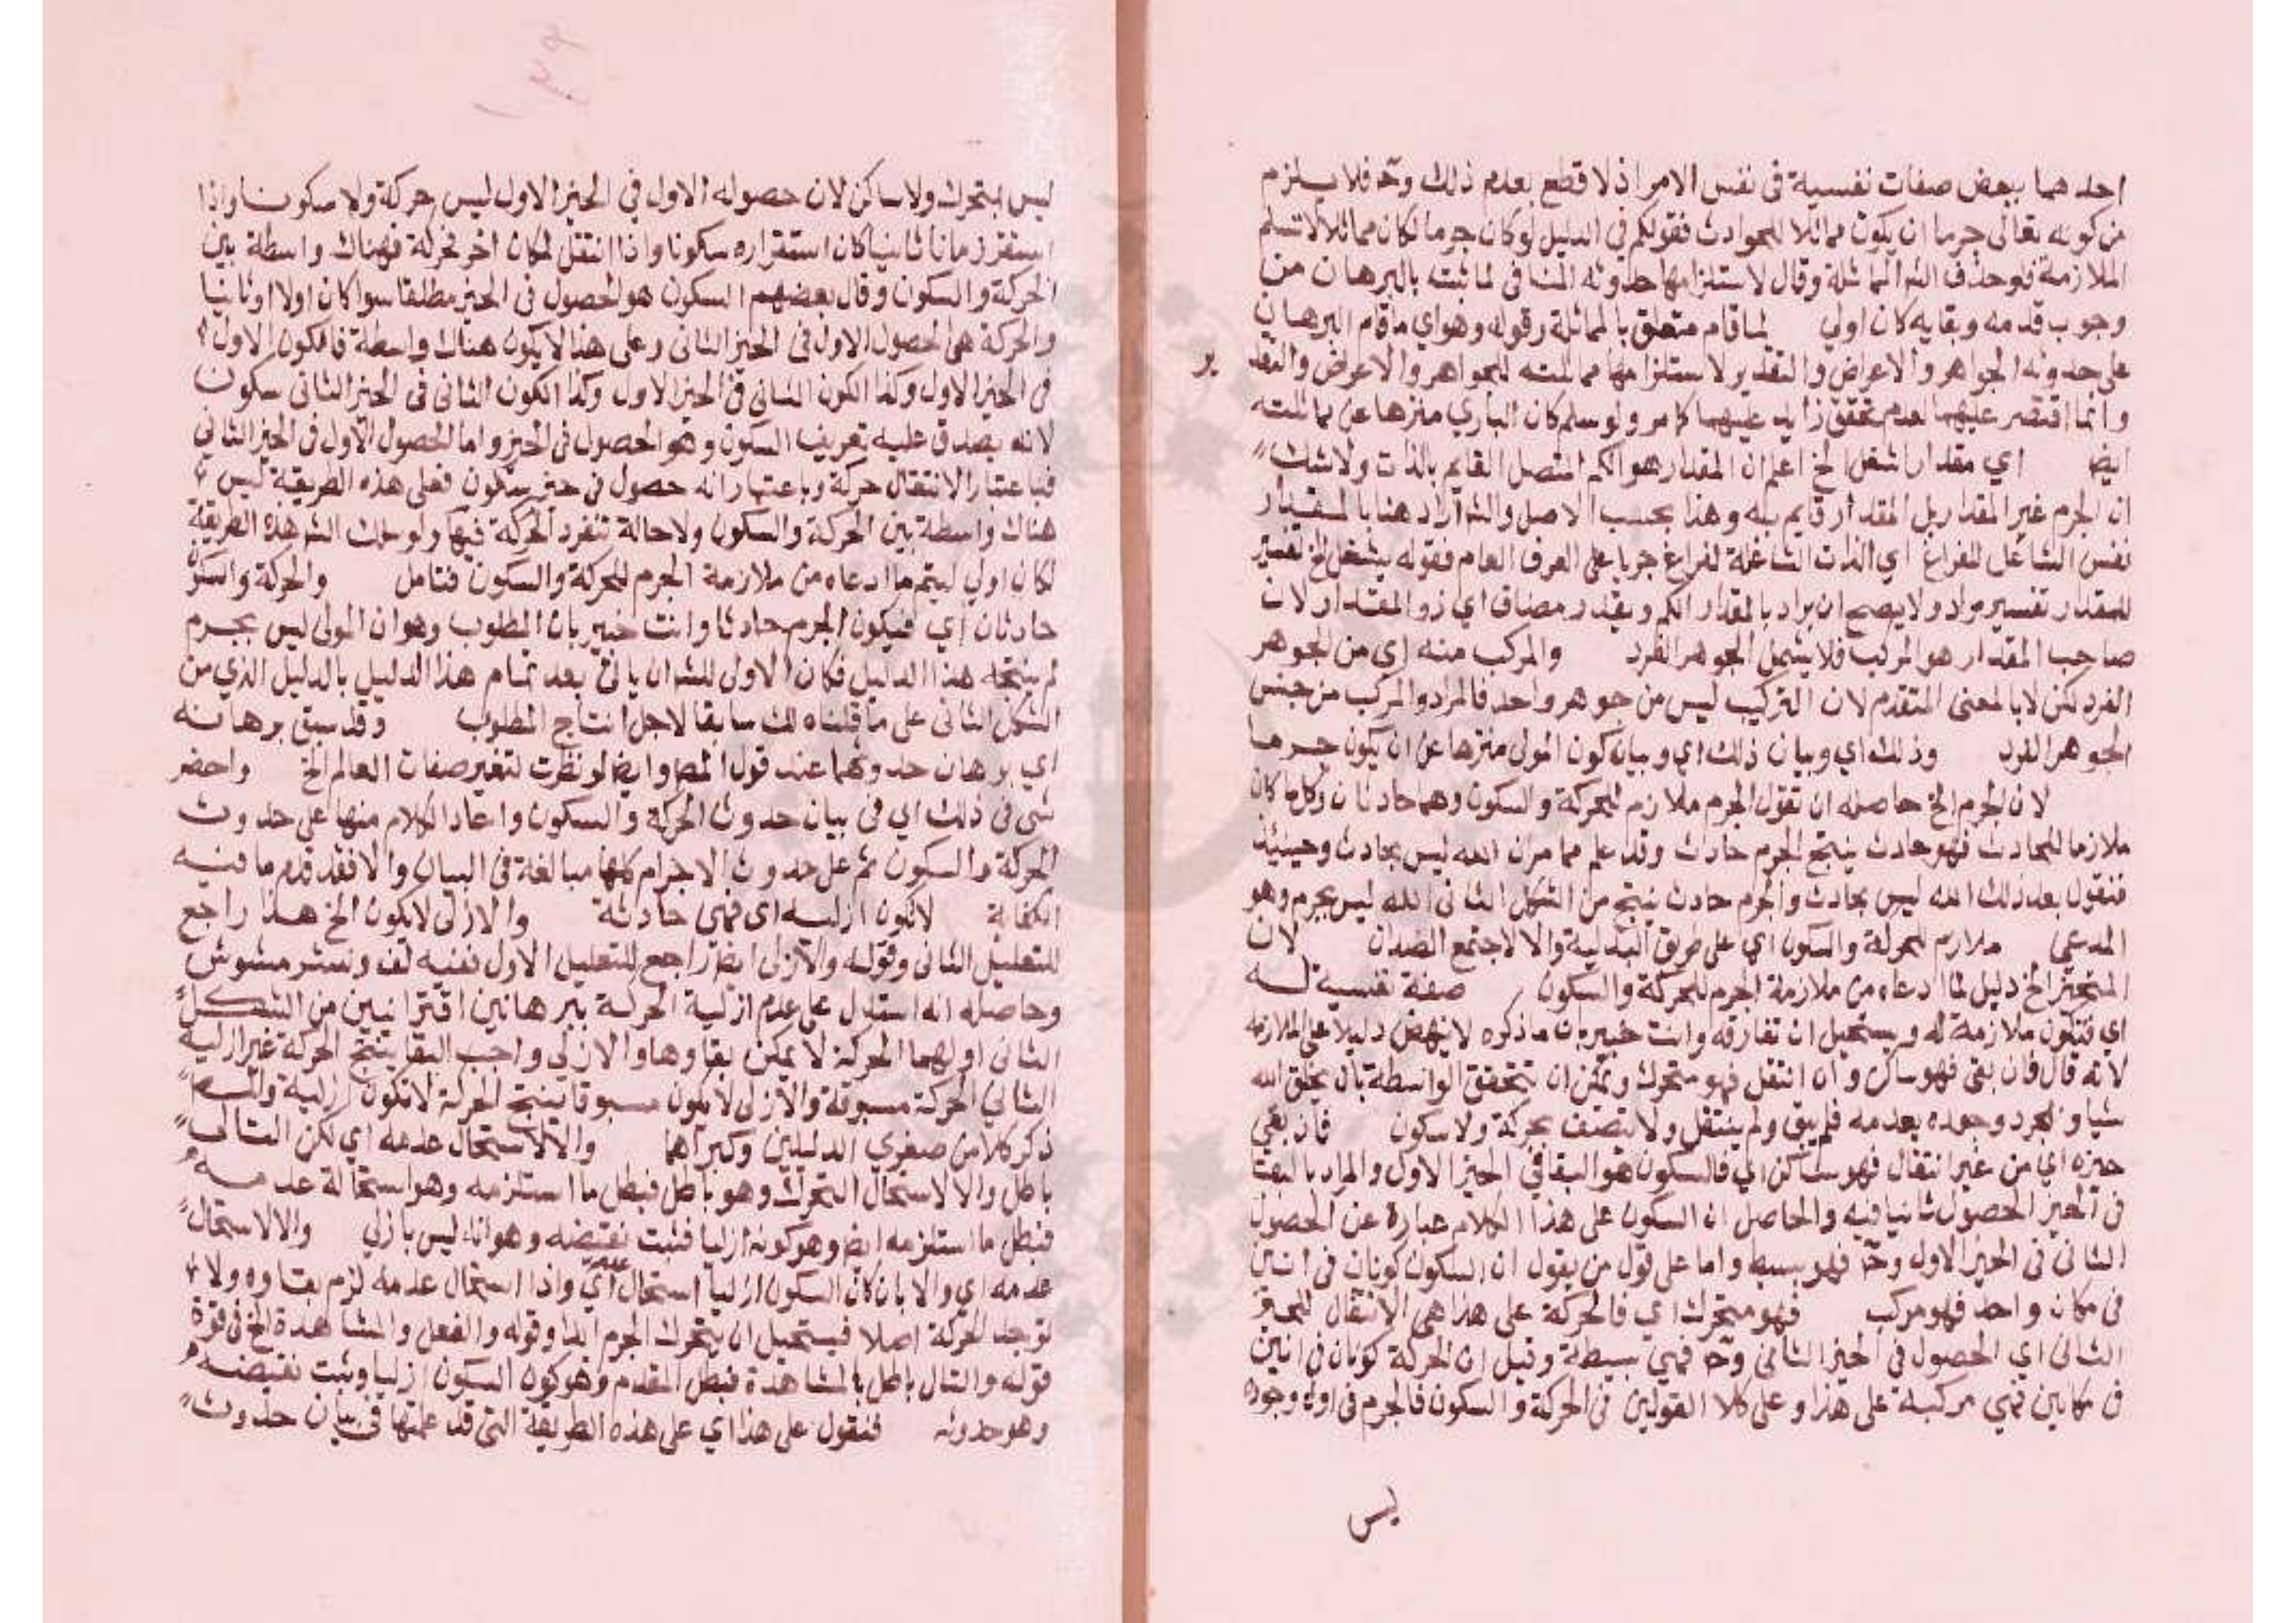 احدهما ببعض صفات نفسية فى نفس الامر اذ لا قطع بعدم ذلك وحـ فلا يستلزم
من كونه تعالى جرما ان يكون مماثلا للحوادث فقولكم فى الدليل لو كان جرما لكان مماثلا لا تسلم
الملازمة فلو حذف الشـ المماثلة وقال لاستلزامها حدوثه المنافى لما ثبت بالبرهان من
وجوب قدمه وبقايه كان اولي لما قام متعلق بالمماثلة وقوله وهو اي ما قام البرهان
على حدوثه الجواهر والاعراض والتقدير لاستلزامها مماثلته للجواهر والاعراض والتقد
ير
وانما اقتصر عليهما لعدم تحقق زايد عليهما كما مر ولو سلم كان الباري منزها عن مماثلته
ايضا اي مقدار اشغل الخ اعم ان المقدار هو الكم المتصل القايم بالذات ولا شك
ان الجرم غير المقدار بل المقدار قايم به وهذا بحسب الاصل والشـ اراد هنا بالمقدار
نفس الشاغل للفراغ اي الذات الشاغلة لفراغ جريا على العرف العام فقوله يشغل الخ تفسير
للمقدار تفسير مراد ولا يصح ان يراد بالمقدار الكم ويقدر مضاف اي ذو المقدار لان
صاحب المقدار هو المركب فلا يشمل الجوهر الفرد والمركب منه اي من الجوهر
الفرد لكن لا بالمعنى المتقدم لان التركيب ليس من جوهر واحد فالمراد والمركب من جنس
الجوهر الفرد وذلك اي وبيان ذلك اي وبيان كون المولى منزها عن ان يكون جرما
لان الجرم الخ حاصله ان تقول الجرم ملازم للحركة والسكون وهما حادثان وكل ما كان
ملازما للحادث فهو حادث ينتج الجرم حادث وقد علم مما مر ان الله ليس بحادث وحينيئذ
فنقول بعد ذلك الله ليس بحادث والجرم حادث ينتج من الشكل الثانى الله ليس بجرم وهو
المدعى ملازم للحركة والسكون اي على طريق البدلية والا لاجتمع الضدان لان
المتحيز الخ دليل لما ادعاه من ملازمة الجرم للحركة والسكون صفة نفسية له
اي فتكون ملازمة له ويستحيل ان تفارقه وانت خبير بان ما ذكره لا ينهض دليلا على الملازمه
لانه قال فان بقى فهو ساكن وان انتقل فهو متحرك ويمكن ان تتحقق الواسطة بان يخلق الله
شيا وبمجرد وجوده يعدمه فلم يبق ولم ينتقل ولا يتصف بحركة ولا سكون فان بقى
حيزه اي من غير انتقال فهو ساكن اي فالسكون هو البقا فى الحيز الاول والمراد بالبقا
فى الحيز الحصول ثانيا فيه والحاصل ان السكون على هذا الكلام عبارة عن الحصول
الثانى فى الحيز الاول وحـ فهو بسيط واما على قول من يقول ان السكون كونان فى انين
فى مكان واحد فهو مركب فهو متحرك اي فالحركة على هذا هى الانتقال للحيز
الثانى اي الحصول فى الحيز الثانى وحـ فهي بسيطة وقيل ان الحركة كونان فى انين
فى مكانين فهي مركبة على هذا وعلى كلا القولين فى الحركة والسكون فالجرم فى اول وجوده
ليس
ليس بمتحرك ولا ساكن لان حصوله الاول في الحيز الاول ليس حركة ولا سكونا واذا
استقر زمانا ثانيا كان استقراره سكونا واذا انتقل لمكان اخر فحركة فهناك واسطة بين
الحركة والسكون وقال بعضهم السكون هو الحصول فى الحيز مطلقا سوا كان اولا او ثانيا
والحركة هى الحصول الاول فى الحيز الثانى وعلى هذا لا يكون هناك واسطة فالكون الاول
فى الحيز الاول وكذا الكون الثانى فى الحيز الاول وكذا الكون الثانى فى الحيز الثانى سكون
لانه يصدق عليه تعريف السكون وهو الحصول فى الحيز واما الحصول الاول فى الحيز الثاني
فباعتبار الانتقال حركة وباعتبار انه حصول فى حيز سكون فعلى هذه الطريقة ليس
هناك واسطة بين الحركة والسكون ولا حالة تنفرد الحركة فيها ولو سلك الشـ هذه الطريقة
لكان اولي ليتم ما ادعاه من ملازمة الجرم للحركة والسكون فتامل والحركة والسكون
حادثان اي فيكون الجرم حادثا وانت خبير بان المطلوب وهو ان المولى ليس بجرم
لم ينتجه هذا الدليل فكان الاولى للشـ ان ياتى بعد تمام هذا الدليل بالدليل الذي من
الشكل الثانى على ما قلناه لك سابقا لاجل انتاج المطلوب وقد سبق برهانه
اي برهان حدوثهما عند قول المصـ وايضا لو نظرت لتغير صفات العالم الخ واحضر
شى فى ذلك اي فى بيان حدوث الحركة والسكون واعاد الكلام منها على حدوث
الحركة والسكون ثم على حدوث الاجرام كلها مبالغة فى البيان والا فقد قدم ما فيه
الكفاية لا تكون ازلية اى فهى حادثة والازلى لا يكون الخ هذا راجع
للتعليل الثانى وقوله والازلى ايضا راجع للتعليل الاول ففيه لف ونشر مشوش
وحاصله انه استدل على عدم ازلية الحركة ببرهانين اقترانيين من الشكل
الثانى اولهما الحركة لا يمكن بقاوها والازلى واجب البقا ينتج الحركة غير ازلية
الثاني الحركة مسبوقة والازلى لا يكون مسبوقا ينتج الحركة لا تكون ازلية والشـ
ذكر كلا من صغري الدليلين وكبراهما والا لاستحال عدمه اي لكن التالى
باطل والا لاستحال التحرك وهو باطل فبطل ما استلزمه وهو استحالة عدمه
فبطل ما استلزمه ايضا وهو كونه ازليا فثبت نقيضه وهو انه ليس بازلي والا لاستحال
عدمه اي والا بان كان السكون ازليا استحال عدمه اي واذا استحال عدمه لزم بقاوه ولا
توجد الحركة اصلا فيستحيل ان يتحرك الجرم ابدا وقوله والفعل والمشاهدة الخ فى قوة
قوله والتالى باطل بالمشاهدة فبطل المقدم وهو كون السكون ازليا وثبت نقيضه
وهو حدوثه فنقول على هذا اي على هذه الطريقة التى قد علمتها فى بيان حدوث